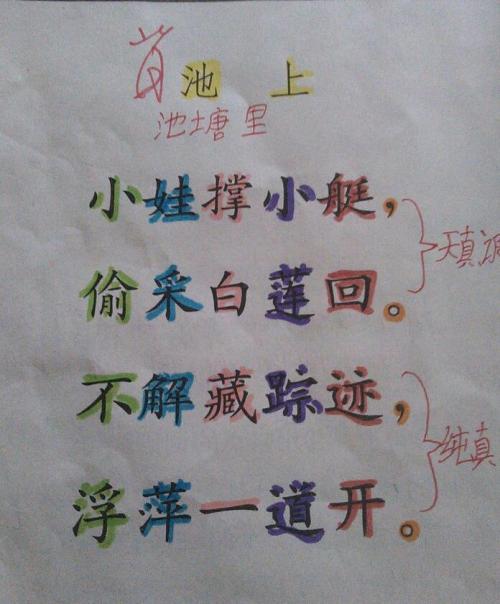 背 池 上
池塘里
小娃撑小艇，
天真
偷采白莲回。
不解藏踪迹，
纯真
浮萍一道开。